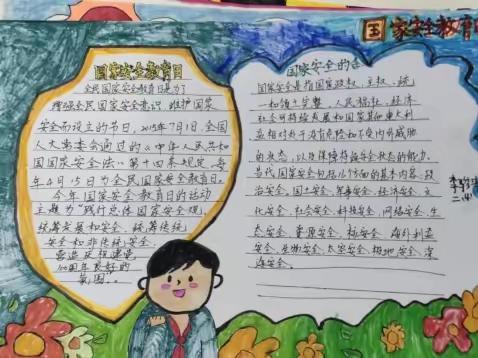 国家安全教育日
国家安全教育日
全民国家安全教育日是为了
增强全民国家安全意识，维护国家
安全而设立的节日，2015年7月1日，全国
人大常委会通过的《中华人民共和
国国家安全法》第十四条规定，每
年4月15日为全民国家安全教育日。
今年国家安全教育日的活动
主题为“践行总体国家安全观，
统筹发展和安全，统筹传统
安全和非传统安全，
营造庆祝建党
100周年良好的
氛围。”
国家安全的含
国家安全是指国家政权、主权、统
一和领土完整、人民福祉、经济
社会可持续发展和国家其他重大利
益相对处于没有危险和不受内外威胁
的状态，以及保障持续安全状态的能力。
当代国家安全包括16方面的基本内容：政
治安全、国土安全、军事安全、经济安全、文
化安全、社会安全、科技安全、网络安全、生
态安全、资源安全、核安全、海外利益
安全、生物安全、太空安全、极地安全、深
海安全。
二(4)